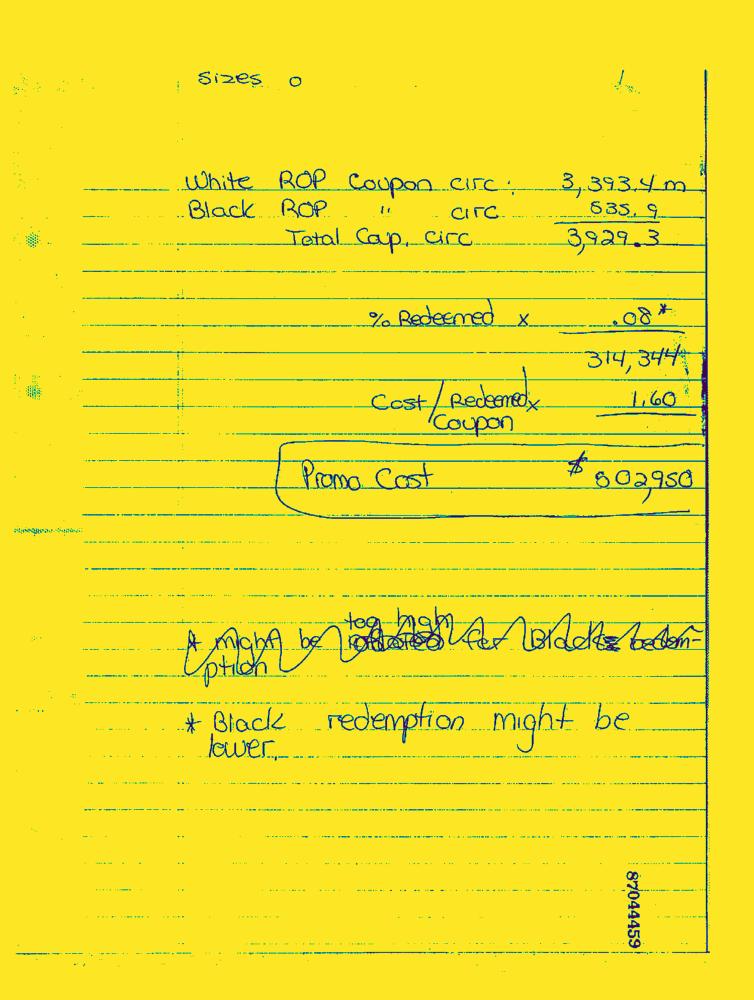 Sizes 0
White ROP Coupon circ: 3,393.4 m
Black ROP " circ 535.9
Total Cap. circ 3,929.3
% Redeemed x .08*
314,344
Cost/Redeemed x 1.60
Coupon
Promo Cost $ 502,950
too high
* might be for Black redem-
ption
* Black redemption might be
lower.
87044459